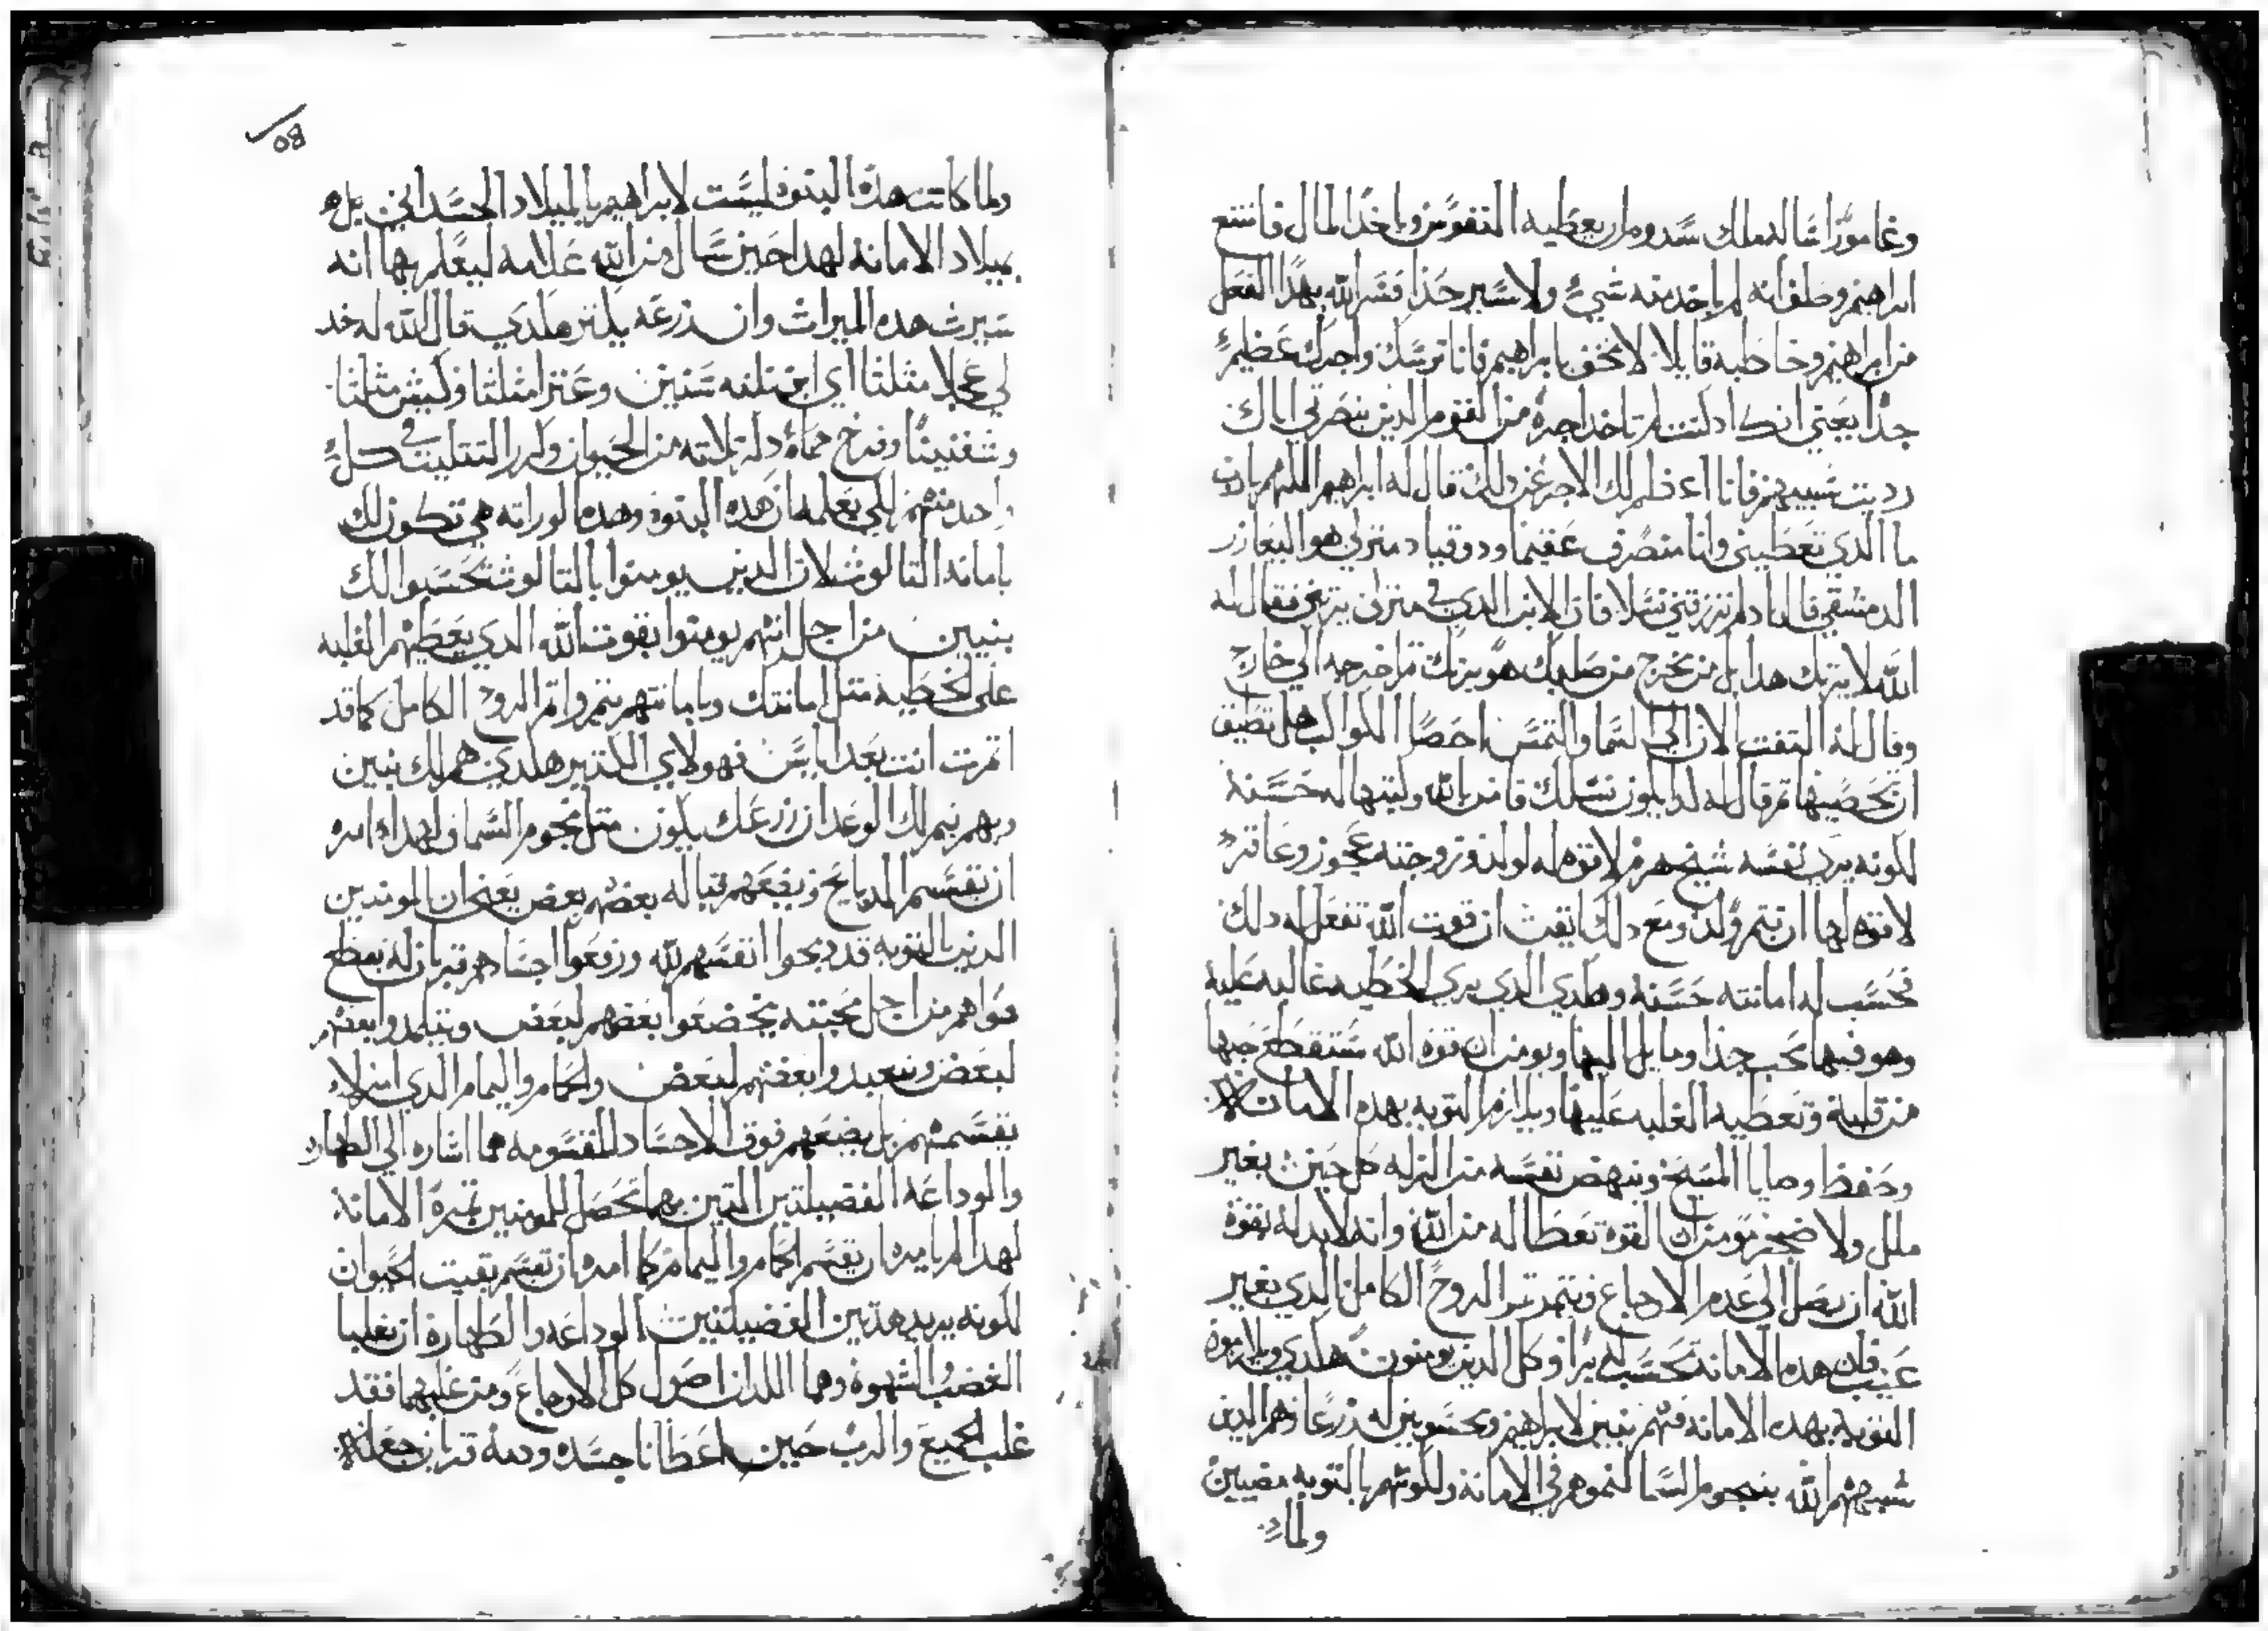 وغامورا شاله ملك سدوم ان يعطيه النفوس وياخد المال فامتنع
ابراهيم وحلف انه لم ياخد منه شيء ولا سير حذا فسر الله بهذا الفعل
من ابراهيم وخاطبه قايلا لا تخف يا ابراهيم فانا ترسك واجرك عظيم
جدا يعني ان كا دلتت لم تاخد اجره من القوم الدين بنصرتي اياك
رديت سبيهم فانا اعظم لك الاجر عن دلك قال له ابراهيم اللهم يارب
ما الدي تعطيني وانا منصرف عقيما ودو قياد منزلي هو اليعازر
الدمشقي فاد لم ترزقني نسلا فان الابن الدي في منزلي يرتني فقال له
الله لا يرتك هدا بل من يخرج من صلبك هو يرتك تم اخرجه الي خارج
وقال له التفت الان الي السما والتمس احصا الكواكب هل تطيق
ان تحصيها تم قال له كدا يكون نسلك فامن بالله وكتبها له حسنة
لكونه يري نفسه شيخ هرم لا قوه له لولد وزوجته عجوز وعاقر
لا قوه لها ان تتمر ولد ومع دلك ايقن ان قوت الله تفعل له دلك
فحسب له امانته حسنة وهكدي الدي يري الخطيه غالبه عليه
وهو فيها محب جدا ومايل اليها ويومن ان قوة الله ستقطع حبها
من قلبه وتعطيه الغلبه عليها ويلازم التوبه بهده الامانه
وحفظ وصايا المسيح وينهض نفسه من الزله كل حين بغير
ملل ولا ضجر يومن ان القوة تعطا له من الله وانه لابد له بقوة
الله ان يصل الي عدم الاوجاع فيتمر تمر الروح الكامل الدي بغير
عيب فان هده الامانه تحسب له برا وكل الدين يومنون هكدي ويلازموا
التوبه بهده الامانه فهم بنين لابراهيم وتحسوبين له زرعا وهم الدين
شبههم الله بنجوم السما لنموهم في الامانة ولكونهم بالتوبه مضيين
ولما
80
ولما كانت هده البنوه ليست لابراهيم بالميلاد الجسداني بل
بميلاد الامانه لهدا حين سال من الله علامه ليعلم بها انه
سيرث هده الميراث وان زرعه يكتر هكدي قال الله له خد
لي عجلا مثلثا اي ابن تلته سنين وعنزا مثلثا وكبش مثلثا
وشفنينا وفرخ حمام دله تلاته من الحيوان وكرر التتليت في كل
واحد منهم لكي يعلمه ان هده البنوه وهده الوراته هي تكون لك
بامانة التالوث لان الدين يومنوا بالتالوث تحسبوا لك
بنيين من اجل انهم يومنوا بقوت الله الدي يعطيهم الغلبه
علي الخطيه متل امانتك وبامانتهم يتمروا تمر الروح الكامل كما قد
اتمرت انت بعد الاياس فهولاي الكتير هكدي هم لك بنين
وبهم يتم لك الوعد ان زرعك يكون متل نجوم السما ولهدا امره
ان يقسم الدبايح ويضعهم قباله بعضهم بعض يعني ان المومنين
الدين بالتوبه قد دبحوا انفسهم لله ورفعوا اجسادهم قربان له بقطع
هواهم من اجل محبته يخضعوا بعضهم لبعض ويتلمدوا بعضهم
لبعض ويتعبدوا بعضهم لبعض والحمام واليمام الدي امر لا
يقسمهم بل يضعهم فوق الاجساد المقسومه هما اشاره الي الطهاره
والوداعه الفضيلتين التين بهما تحصل للمومنين تمرة الامانة
لهدا لم يامره ان يقسم الحمام واليمام كما امره ان يقسم بقيت الحيوان
لكونه يريد هدتين الفضيلتين الوداعه والطهارة ان يغلبا
الغضب والشهوه وهما اللدان اصول كل الاوجاع ومن غلبهما فقد
غلب الجميع والرب حين اعطانا جسده ودمه قربان جعله